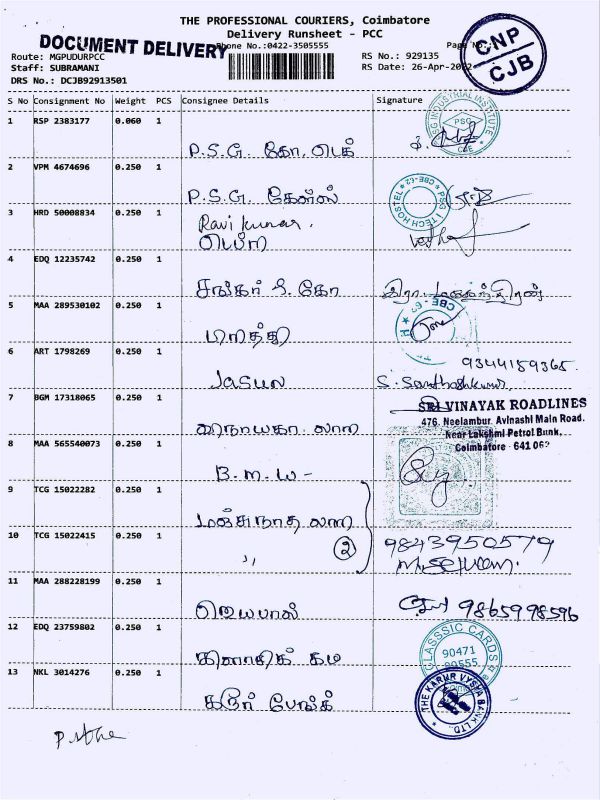 THE PROFESSIONAL COURIERS, Coimbatore
Delivery Runsheet - PCC
DOCUMENT DELIVERY
Phone No.:0422-3505555
CNP
CJB
Route: MGPUDURPCC
RS No.: 929135
Staff: SUBRAMANI
RS Date: 26-Apr-2022
DRS No.: DCJB92913501
S No Consignment No Weight PCS Consignee Details Signature
1 RSP 2383177 0.060 1
P.S.G. கோ.டெக்
2 VPM 4674696 0.250 1
P.S.G.
3 HRD 50008834 0.250 1
Ravi kumar.
4 EDQ 12235742 0.250 1
சங்கர் சி.கோ
5 MAA 289530102 0.250 1
பாரத்
6 ART 1798269 0.250 1
9344159365
Jasun S. Santhoshkumar
7 BGM 17318065 0.250 1
SRI VINAYAK ROADLINES
476, Neelambur, Avinashi Main Road.
Near Lakshmi Petrol Bunk,
Coimbatore - 641 062
8 MAA 565540073 0.250 1
B.M.W -
9 TCG 15022282 0.250 1
மஞ்சுநாதா லாரி
10 TCG 15022415 0.250 1
,, 2
9843950579
11 MAA 288228199 0.250 1
ஜெயபால் 9865998596
12 EDQ 23759802 0.250 1
CLASSSIC CARDS
90471
13 NKL 3014276 0.250 1
கரூர் பேங்க்
THE KARUR VYSYA BANK LTD.